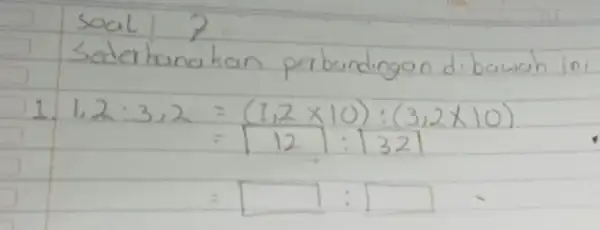 Soal 1 ?
Sederhanakan perbandingan dibawah ini
1. 1,2 : 3,2 = (1,2 x 10) : (3,2 x 10)
= 12 : 32
= :